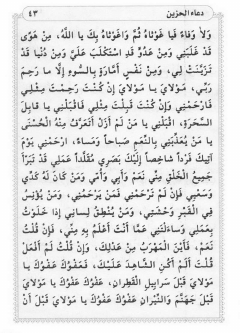 ٤٣ دعاء الحزين
وَلاٰ وَفَاءً فَيَا غَوْثَاهُ ثُمَّ وَاغَوْثَاهُ بِكَ يَا اَللّٰهُ، مِنْ هَوًى
قَدْ غَلَبَنِي وَمِنْ عَدُوٍّ قَدِ اسْتَكْلَبَ عَلَيَّ وَمِنْ دُنْيَا قَدْ
تَزَيَّنَتْ لِي، وَمِنْ نَفْسٍ أَمَّارَةٍ بِالسُّوءِ إِلَّا مَا رَحِمَ
رَبِّي، مَوْلاٰيَ يَا مَوْلاٰيَ إِنْ كُنْتَ رَحِمْتَ مِثْلِي
فَارْحَمْنِي وَإِنْ كُنْتَ قَبِلْتَ مِثْلِي فَاقْبَلْنِي يَا قَابِلَ
السَّحَرَةِ اِقْبَلْنِي يَا مَنْ لَمْ أَزَلْ أَتَعَرَّفُ مِنْهُ الْحُسْنَى
يَا مَنْ يُغَذِّينِي بِالنِّعَمِ صَبَاحاً وَمَسَاءً، اِرْحَمْنِي يَوْمَ
آتِيكَ فَرْداً شَاخِصاً إِلَيْكَ بَصَرِي مُقَلَّداً عَمَلِي قَدْ تَبَرَّأَ
جَمِيعُ الْخَلْقِ مِنِّي نَعَمْ وَأَبِي وَأُمِّي وَمَنْ كَانَ لَهُ كَدِّي
وَسَعْيِي فَإِنْ لَمْ تَرْحَمْنِي فَمَنْ يَرْحَمُنِي، وَمَنْ يُؤْنِسُ
فِي الْقَبْرِ وَحْشَتِي، وَمَنْ يُنْطِقُ لِسَانِي إِذَا خَلَوْتُ
بِعَمَلِي وَسَاءَلْتَنِي عَمَّا أَنْتَ أَعْلَمُ بِهِ مِنِّي، فَإِنْ قُلْتُ
نَعَمْ، فَأَيْنَ الْمَهْرَبُ مِنْ عَدْلِكَ، وَإِنْ قُلْتُ لَمْ أَفْعَلْ
قُلْتَ أَلَمْ أَكُنِ الشَّاهِدَ عَلَيْكَ، فَعَفْوَكَ عَفْوَكَ يَا
مَوْلاٰيَ قَبْلَ سَرَابِيلِ الْقَطِرَانِ، عَفْوَكَ عَفْوَكَ يَا مَوْلاٰيَ
قَبْلَ جَهَنَّمَ وَالنِّيرَانِ عَفْوَكَ عَفْوَكَ يَا مَوْلاٰيَ قَبْلَ أَنْ